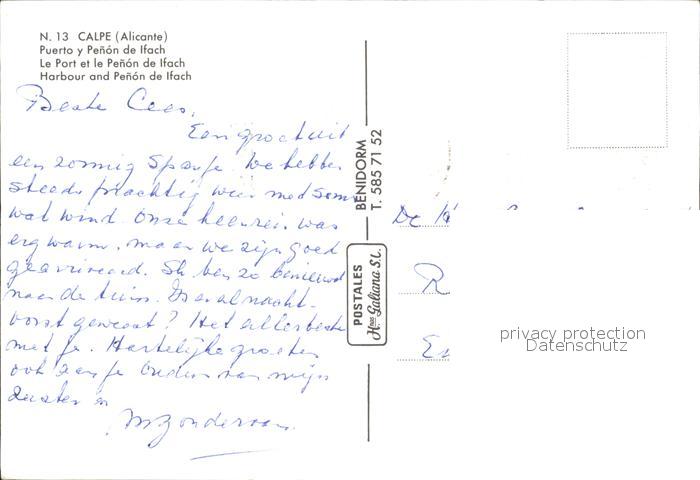 N. 13 CALPE (Alicante)
Puerto y Peñón de Ifach
Le Port et le Peñón de Ifach
Harbour and Peñón de Ifach
Beste Cees,
Een groet uit
een zonnig Spanje. We hebben
steeds prachtig weer met soms
wat wind. Onze heenreis was
erg warm, maar we zijn goed
gearriveerd. Ik ben zo benieuwd
naar de tuin. Is er al nacht-
vorst geweest? Het allerbeste
met je. Hartelijke groeten
ook aan je ouders van mijn
zuster en
M Zondervan.
BENIDORM
T. 585 71 52
POSTALES
Hnos Galiana S.L.
De
R
privacy protection
Datenschutz